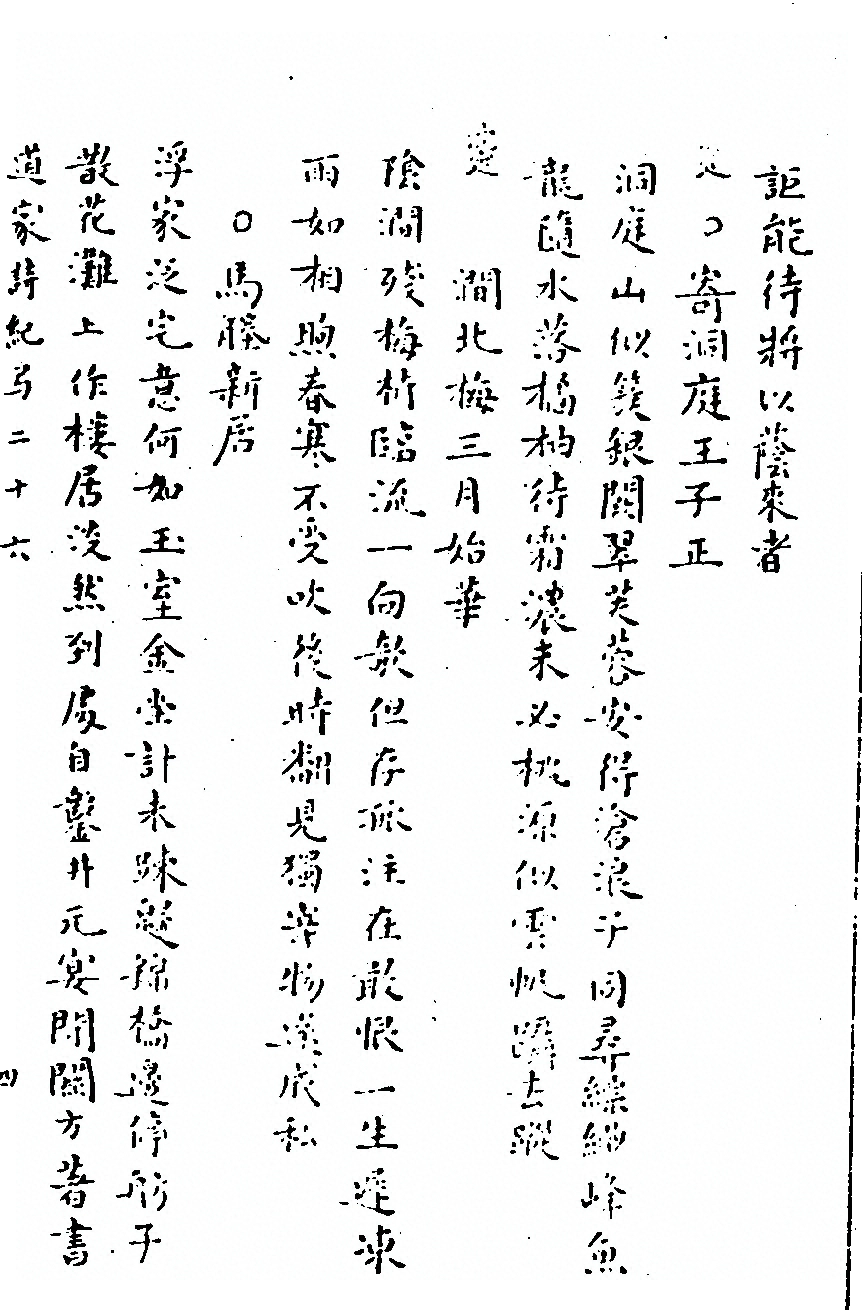 詎能待將以蔭來者
○寄洞庭王子正
洞庭山似簇銀闕翠芙蓉安得滄浪子同尋縹緲峰魚
龍隨水落橘柚待霜濃未必桃源似雲帆躡去蹤
澗北梅三月始華
陰澗殘梅樹臨流一向欹但存孤注在敢恨一生遲凍
雨如相煦春寒不受吹後時翻見獨造物遂成私
○馬塍新居
浮家泛宅意何如玉室金堂計未踈 錦橋邊停舫子
散花灘上作樓居淡然到處自鑿井元宴閉關方著書
道家詩紀 二十六
四